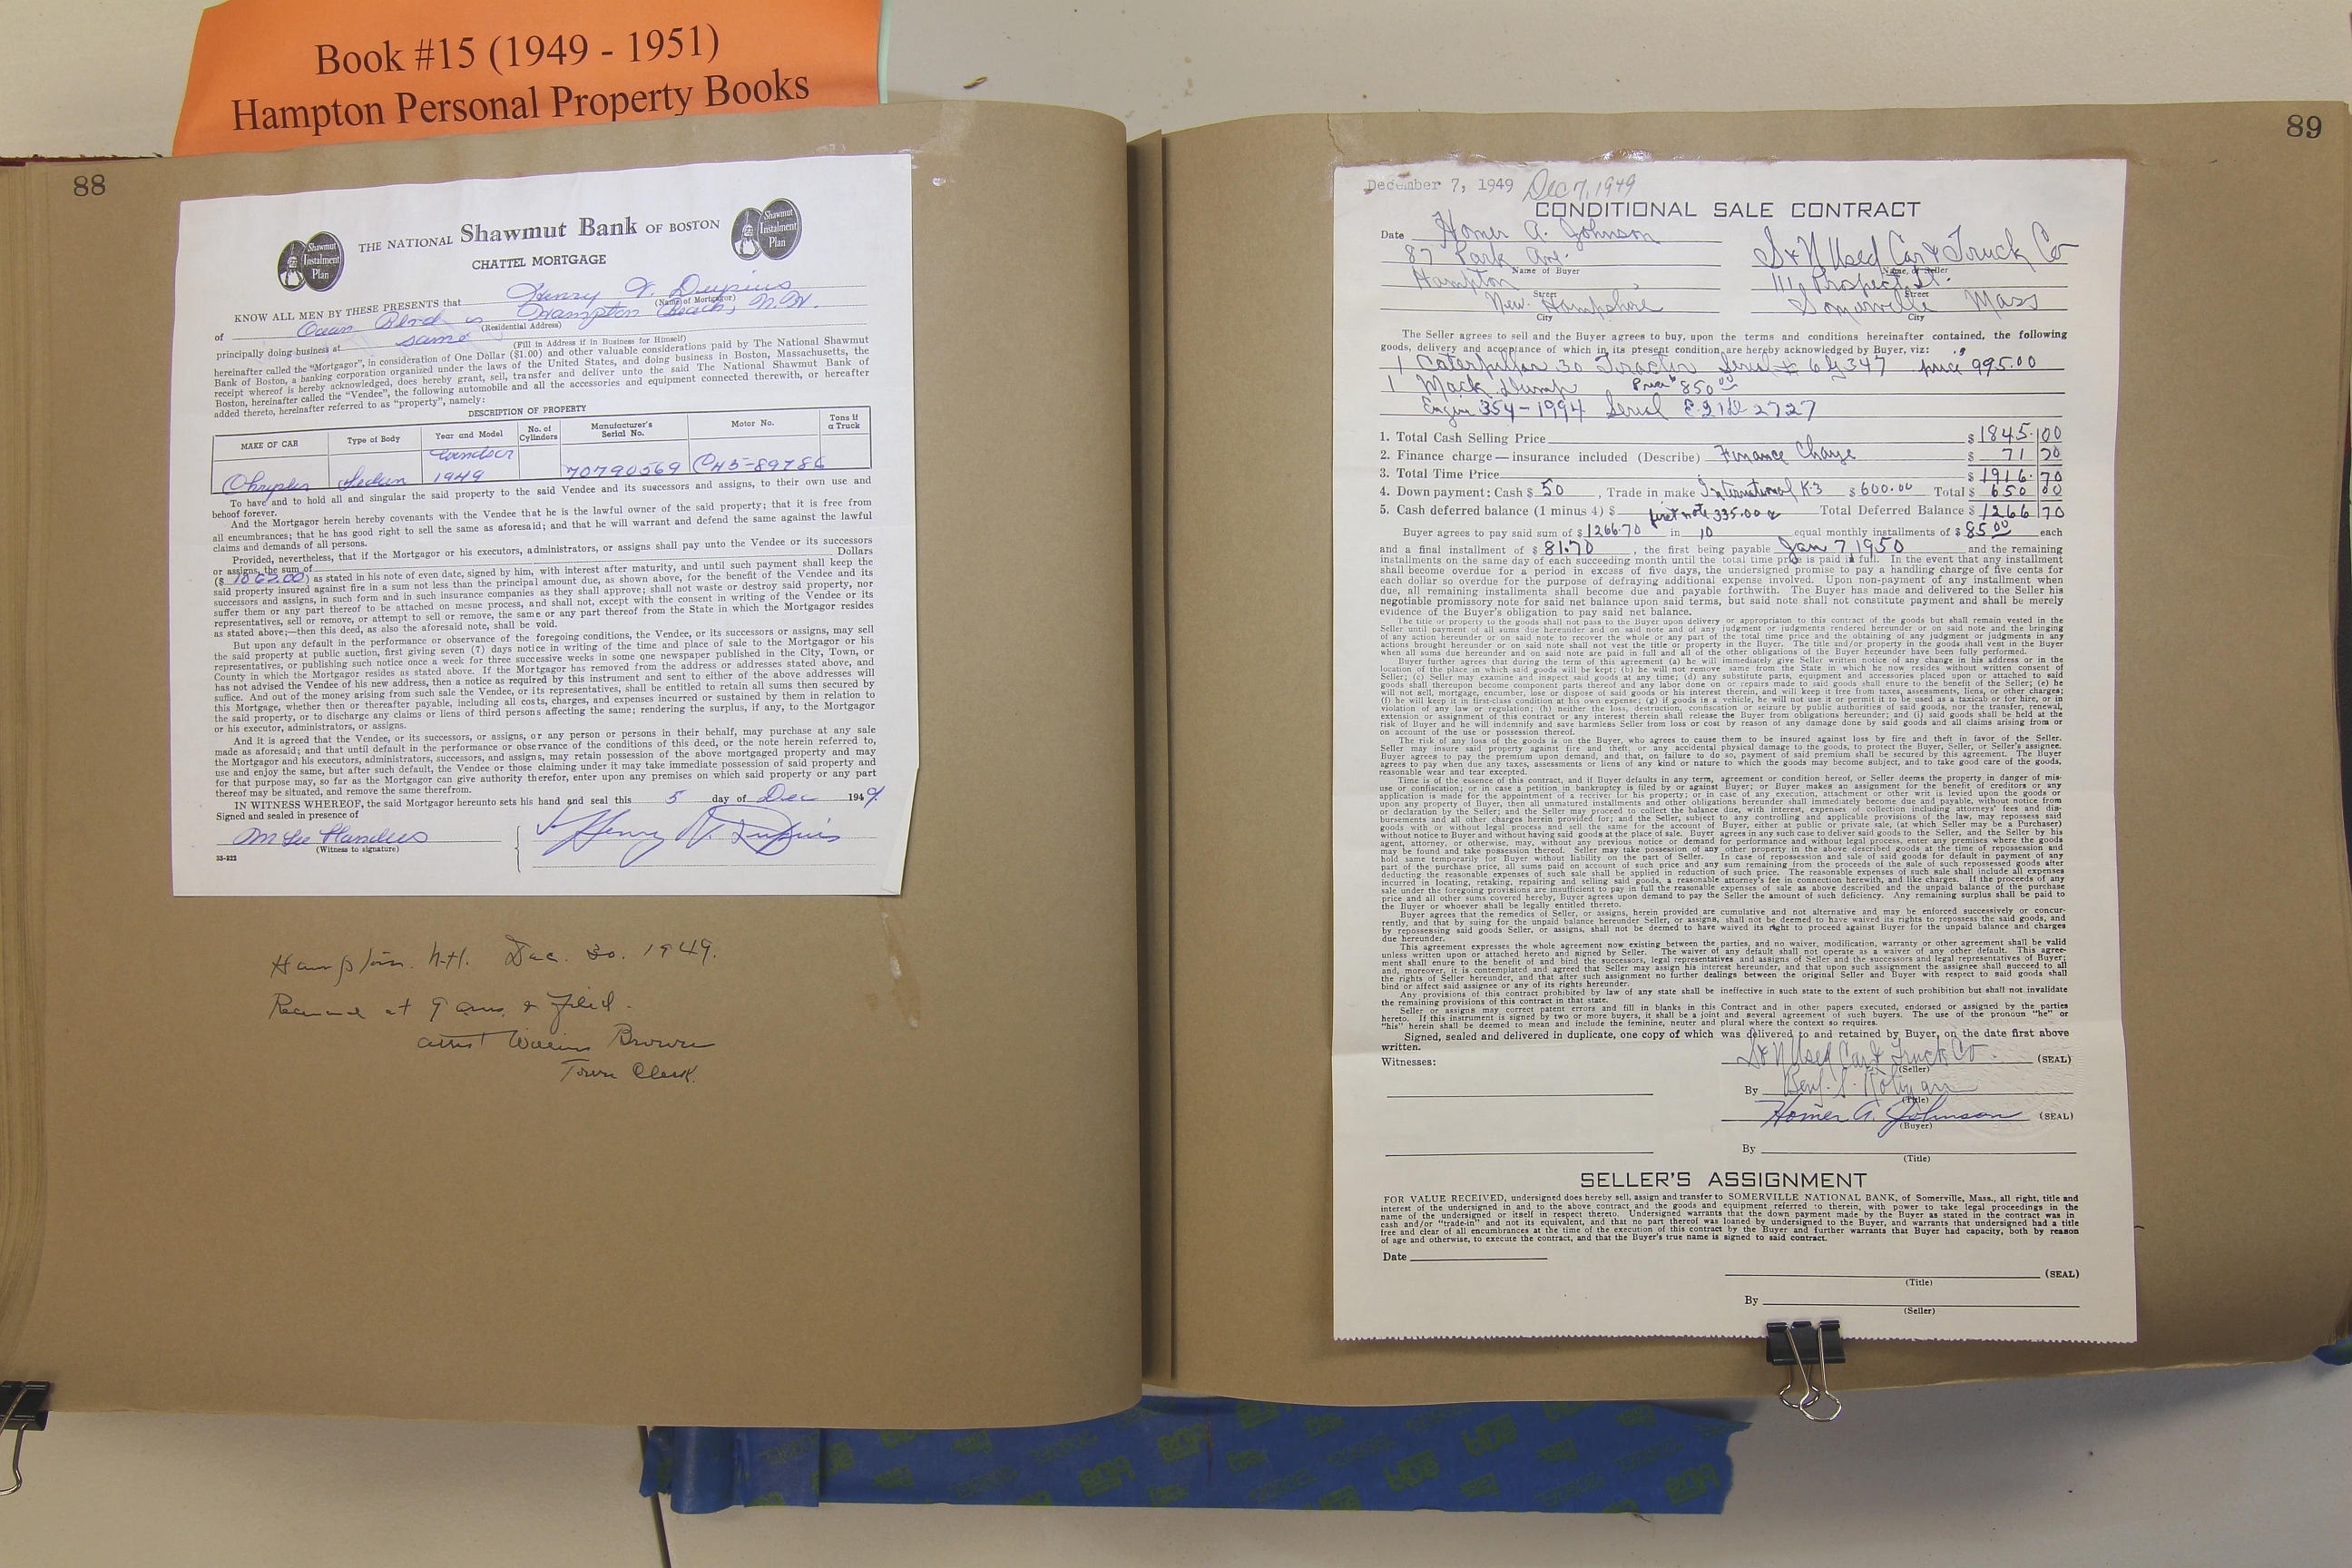 Book #15 (1949 - 1951)
Hampton Personal Property Books
88
Shawmut
Instalment
Plan
THE NATIONAL Shawmut Bank OF BOSTON
Shawmut
Instalment
Plan
CHATTEL MORTGAGE
KNOW ALL MEN BY THESE PRESENTS that Henry V. Dupuis
(Name of Mortgagor)
of Ocean Blvd Hampton Beach, N.H.
(Residential Address)
principally doing business at same
(Fill in Address if in Business for Himself)
hereinafter called the "Mortgagor", in consideration of One Dollar ($1.00) and other valuable considerations paid by The National Shawmut
Bank of Boston, a banking corporation organized under the laws of the United States, and doing business in Boston, Massachusetts, the
receipt whereof is hereby acknowledged, does hereby grant, sell, transfer and deliver unto the said The National Shawmut Bank of
Boston, hereinafter called the "Vendee", the following automobile and all the accessories and equipment connected therewith, or hereafter
added thereto, hereinafter referred to as "property", namely:
DESCRIPTION OF PROPERTY
MAKE OF CAR Type of Body Year and Model No. of Cylinders Manufacturer's Serial No. Motor No. Tons if a Truck
Windsor
Chrysler Sedan 1949 70790569 C45-89786
To have and to hold all and singular the said property to the said Vendee and its successors and assigns, to their own use and
behoof forever.
And the Mortgagor herein hereby covenants with the Vendee that he is the lawful owner of the said property; that it is free from
all encumbrances; that he has good right to sell the same as aforesaid; and that he will warrant and defend the same against the lawful
claims and demands of all persons.
Provided, nevertheless, that if the Mortgagor or his executors, administrators, or assigns shall pay unto the Vendee or its successors
or assigns, the sum of Dollars
($ 1862.00) as stated in his note of even date, signed by him, with interest after maturity, and until such payment shall keep the
said property insured against fire in a sum not less than the principal amount due, as shown above, for the benefit of the Vendee and its
successors and assigns, in such form and in such insurance companies as they shall approve; shall not waste or destroy said property, nor
suffer them or any part thereof to be attached on mesne process, and shall not, except with the consent in writing of the Vendee or its
representatives, sell or remove, or attempt to sell or remove, the same or any part thereof from the State in which the Mortgagor resides
as stated above;—then this deed, as also the aforesaid note, shall be void.
But upon any default in the performance or observance of the foregoing conditions, the Vendee, or its successors or assigns, may sell
the said property at public auction, first giving seven (7) days notice in writing of the time and place of sale to the Mortgagor or his
representatives, or publishing such notice once a week for three successive weeks in some one newspaper published in the City, Town, or
County in which the Mortgagor resides as stated above. If the Mortgagor has removed from the address or addresses stated above, and
has not advised the Vendee of his new address, then a notice as required by this instrument and sent to either of the above addresses will
suffice. And out of the money arising from such sale the Vendee, or its representatives, shall be entitled to retain all sums then secured by
this Mortgage, whether then or thereafter payable, including all costs, charges, and expenses incurred or sustained by them in relation to
the said property, or to discharge any claims or liens of third persons affecting the same; rendering the surplus, if any, to the Mortgagor
or his executor, administrators, or assigns.
And it is agreed that the Vendee, or its successors, or assigns, or any person or persons in their behalf, may purchase at any sale
made as aforesaid; and that until default in the performance or observance of the conditions of this deed, or the note herein referred to,
the Mortgagor and his executors, administrators, successors, and assigns, may retain possession of the above mortgaged property and may
use and enjoy the same, but after such default, the Vendee or those claiming under it may take immediate possession of said property and
for that purpose may, so far as the Mortgagor can give authority therefor, enter upon any premises on which said property or any part
thereof may be situated, and remove the same therefrom.
IN WITNESS WHEREOF, the said Mortgagor hereunto sets his hand and seal this 5 day of Dec 1949.
Signed and sealed in presence of
Henry V. Dupuis
(Witness to signature)
33-822
Hampton. N.H. Dec. 30. 1949.
Received at 9 am. & filed.
attest William Brown
Town Clerk.
89
December 7, 1949 Dec 7, 1949
CONDITIONAL SALE CONTRACT
Date Homer A. Johnson
S & N Used Car & Truck Co
87 Park Ave.
Name of Buyer
Name of Seller
Hampton
Street
New Hampshire
City
114 Prospect St.
Street
Somerville Mass
City
The Seller agrees to sell and the Buyer agrees to buy, upon the terms and conditions hereinafter contained, the following
goods, delivery and acceptance of which in its present condition are hereby acknowledged by Buyer, viz:
1 Caterpillar 30 Tractor Serial # 6G347 price 995.00
1 Mack Dump Price 850.00
Engine 354-1994 Serial 2727
1. Total Cash Selling Price $ 1845.00
2. Finance charge — insurance included (Describe) Finance Charge $ 71 70
3. Total Time Price $ 1916.70
4. Down payment: Cash $ 50, Trade in make International K-3 $ 600.00 Total $ 650 00
5. Cash deferred balance (1 minus 4) $ first note 335.00 & Total Deferred Balance $ 1266 70
Buyer agrees to pay said sum of $ 1266.70 in 10 equal monthly installments of $ 85.00 each
and a final installment of $ 81.70, the first being payable Jan 7 1950 and the remaining
installments on the same day of each succeeding month until the total time price is paid in full. In the event that any installment
shall become overdue for a period in excess of five days, the undersigned promise to pay a handling charge of five cents for
each dollar so overdue for the purpose of defraying additional expense involved. Upon non-payment of any installment when
due, all remaining installments shall become due and payable forthwith. The Buyer has made and delivered to the Seller his
negotiable promissory note for said net balance upon said terms, but said note shall not constitute payment and shall be merely
evidence of the Buyer's obligation to pay said net balance.
The title or property to the goods shall not pass to the Buyer upon delivery or appropriation to this contract of the goods but shall remain vested in the
Seller until payment of all sums due hereunder and on said note and of any judgment or judgments rendered hereunder or on said note and the bringing
of any action hereunder or on said note to recover the whole or any part of the total time price and the obtaining of any judgment or judgments in any
actions brought hereunder or on said note shall not vest the title or property in the Buyer. The title and/or property in the goods shall vest in the Buyer
when all sums due hereunder and on said note are paid in full and all of the other obligations of the Buyer hereunder have been fully performed.
Buyer further agrees that during the term of this agreement (a) he will immediately give Seller written notice of any change in his address or in the
location of the place in which said goods will be kept; (b) he will not remove same from the State in which he now resides without written consent of
Seller; (c) Seller may examine and inspect said goods at any time; (d) any substitute parts, equipment and accessories placed upon or attached to said
goods shall thereupon become component parts thereof and any labor done on or repairs made to said goods shall enure to the benefit of the Seller; (e) he
will not sell, mortgage, encumber, lose or dispose of said goods or his interest therein, and will keep it free from taxes, assessments, liens, or other charges;
(f) he will keep it in first-class condition at his own expense; (g) if goods is a vehicle, he will not use it or permit it to be used as a taxicab or for hire, or in
violation of any law or regulation; (h) neither the loss, destruction, confiscation or seizure by public authorities of said goods, nor the transfer, renewal,
extension or assignment of this contract or any interest therein shall release the Buyer from obligations hereunder; and (i) said goods shall be held at the
risk of Buyer and he will indemnify and save harmless Seller from loss or cost by reason of any damage done by said goods and all claims arising from or
on account of the use or possession thereof.
The risk of any loss of the goods is on the Buyer, who agrees to cause them to be insured against loss by fire and theft in favor of the Seller.
Seller may insure said property against fire and theft, or any accidental physical damage to the goods, to protect the Buyer, Seller, or Seller's assignee.
Buyer agrees to pay the premium upon demand, and that, on failure to do so, payment of said premium shall be secured by this agreement. The Buyer
agrees to pay when due any taxes, assessments or liens of any kind or nature to which the goods may become subject, and to take good care of the goods,
reasonable wear and tear excepted.
Time is of the essence of this contract, and if Buyer defaults in any term, agreement or condition hereof, or Seller deems the property in danger of mis-
use or confiscation; or in case a petition in bankruptcy is filed by or against Buyer; or Buyer makes an assignment for the benefit of creditors or any
application is made for the appointment of a receiver for his property; or in case of any execution, attachment or other writ is levied upon the goods or
upon any property of Buyer, then all unmatured installments and other obligations hereunder shall immediately become due and payable, without notice from
or declaration by the Seller; and the Seller may proceed to collect the balance due, with interest, expenses of collection including attorneys' fees and dis-
bursements and all other charges herein provided for; and the Seller, subject to any controlling and applicable provisions of the law, may repossess said
goods with or without legal process and sell the same for the account of Buyer, either at public or private sale, (at which Seller may be a Purchaser)
without notice to Buyer and without having said goods at the place of sale. Buyer agrees in any such case to deliver said goods to the Seller, and the Seller by his
agent, attorney, or otherwise, may, without any previous notice or demand for performance and without legal process, enter any premises where the goods
may be found and take possession thereof. Seller may take possession of any other property in the above described goods at the time of repossession and
hold same temporarily for Buyer without liability on the part of Seller. In case of repossession and sale of said goods for default in payment of any
part of the purchase price, all sums paid on account of such price and any sum remaining from the proceeds of the sale of such repossessed goods after
deducting the reasonable expenses of such sale shall be applied in reduction of such price. The reasonable expenses of such sale shall include all expenses
incurred in locating, retaking, repairing and selling said goods, a reasonable attorney's fee in connection herewith, and like charges. If the proceeds of any
sale under the foregoing provisions are insufficient to pay in full the reasonable expenses of sale as above described and the unpaid balance of the purchase
price and all other sums covered hereby, Buyer agrees upon demand to pay the Seller the amount of such deficiency. Any remaining surplus shall be paid to
the Buyer or whoever shall be legally entitled thereto.
Buyer agrees that the remedies of Seller, or assigns, herein provided are cumulative and not alternative and may be enforced successively or concur-
rently, and that by suing for the unpaid balance hereunder Seller, or assigns, shall not be deemed to have waived its rights to repossess the said goods, and
by repossessing said goods Seller, or assigns, shall not be deemed to have waived its right to proceed against Buyer for the unpaid balance and charges
due hereunder.
This agreement expresses the whole agreement now existing between the parties, and no waiver, modification, warranty or other agreement shall be valid
unless written upon or attached hereto and signed by Seller. The waiver of any default shall not operate as a waiver of any other default. This agree-
ment shall enure to the benefit of and bind the successors, legal representatives and assigns of Seller and the successors and legal representatives of Buyer;
and, moreover, it is contemplated and agreed that Seller may assign his interest hereunder, and that upon such assignment the assignee shall succeed to all
the rights of Seller hereunder, and that after such assignment no further dealings between the original Seller and Buyer with respect to said goods shall
bind or affect said assignee or any of its rights hereunder.
Any provisions of this contract prohibited by law of any state shall be ineffective in such state to the extent of such prohibition but shall not invalidate
the remaining provisions of this contract in that state.
Seller or assigns may correct patent errors and fill in blanks in this Contract and in other papers executed, endorsed or assigned by the parties
hereto. If this instrument is signed by two or more buyers, it shall be a joint and several agreement of such buyers. The use of the pronoun "he" or
"his" herein shall be deemed to mean and include the feminine, neuter and plural where the context so requires.
Signed, sealed and delivered in duplicate, one copy of which was delivered to and retained by Buyer, on the date first above
written.
Witnesses:
S & N Used Car & Truck Co. (SEAL)
(Seller)
By Benj. S. Rotman
(Title)
Homer A. Johnson (SEAL)
(Buyer)
By
(Title)
SELLER'S ASSIGNMENT
FOR VALUE RECEIVED, undersigned does hereby sell, assign and transfer to SOMERVILLE NATIONAL BANK, of Somerville, Mass., all right, title and
interest of the undersigned in and to the above contract and the goods and equipment referred to therein, with power to take legal proceedings in the
name of the undersigned or itself in respect thereto. Undersigned warrants that the down payment made by the Buyer as stated in the contract was in
cash and/or "trade-in" and not its equivalent, and that no part thereof was loaned by undersigned to the Buyer, and warrants that undersigned had a title
free and clear of all encumbrances at the time of the execution of this contract by the Buyer and further warrants that Buyer had capacity, both by reason
of age and otherwise, to execute the contract, and that the Buyer's true name is signed to said contract.
Date
(SEAL)
(Title)
By
(Seller)